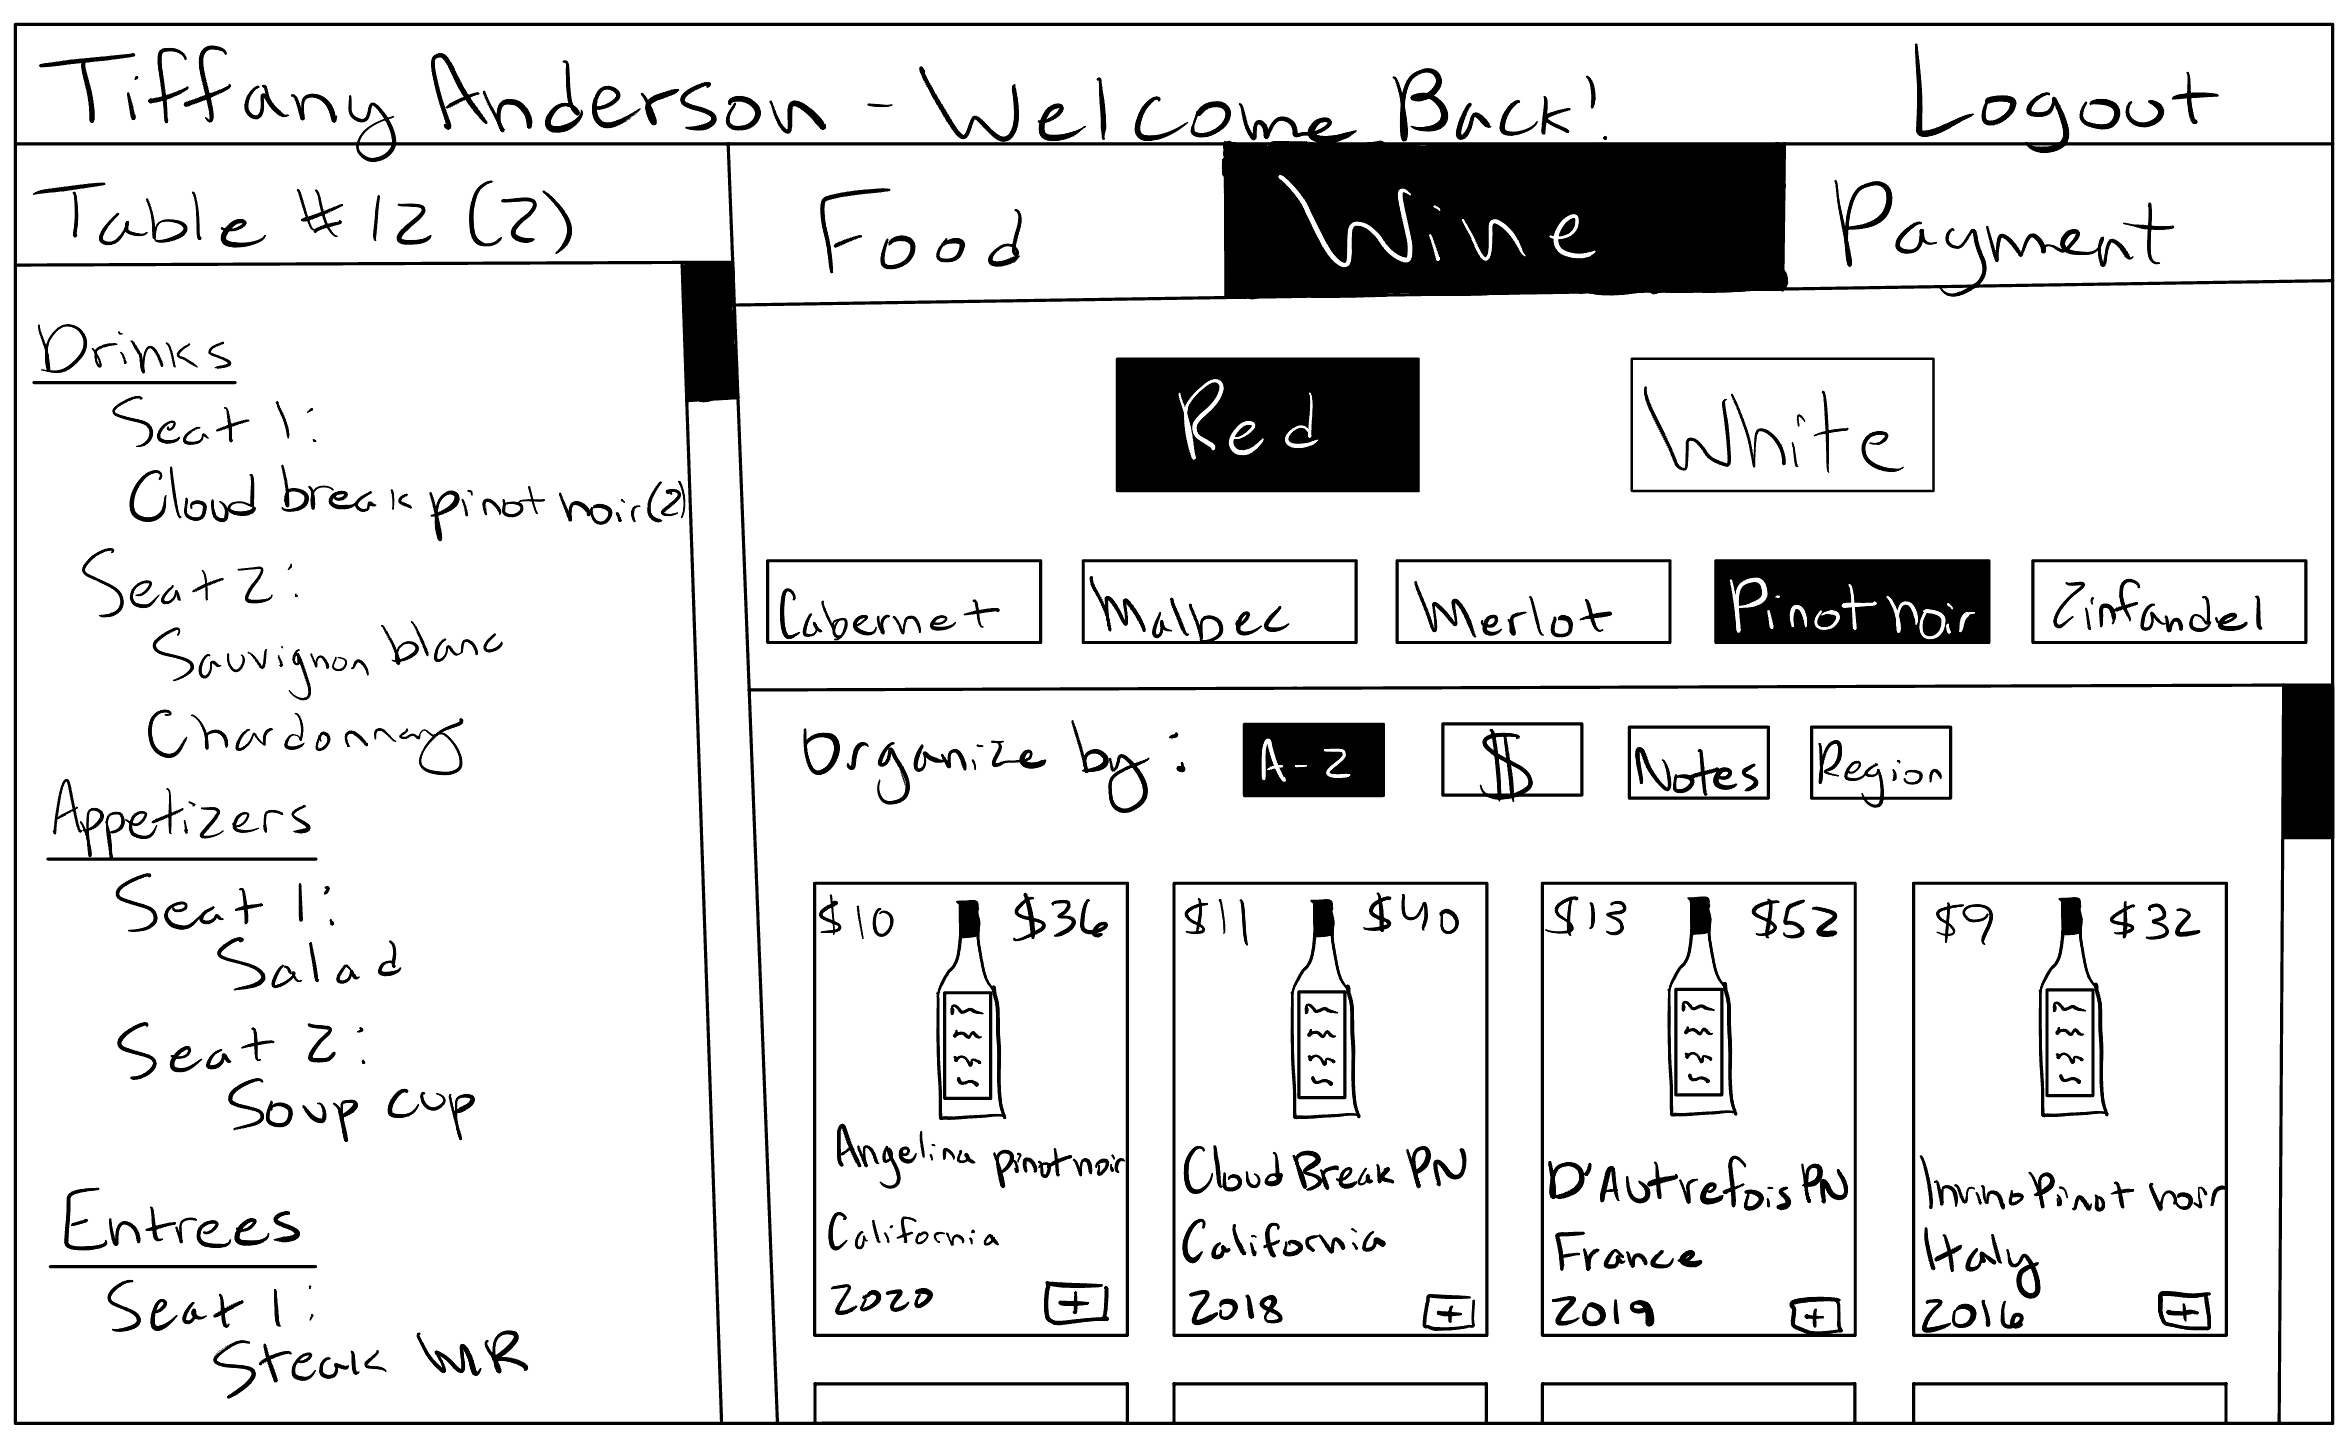 Tiffany Anderson - Welcome Back!
Logout
Table #12 (2)
Food
Wine
Payment
Drinks
Seat 1:
Cloud break pinot noir (2)
Seat 2:
Sauvignon blanc
Chardonnay
Appetizers
Seat 1:
Salad
Seat 2:
Soup cup
Entrees
Seat 1:
Steak MR
Red
White
Cabernet
Malbec
Merlot
Pinot noir
Zinfandel
Organize by:
A-Z
$
Notes
Region
$10 $36
Angelina pinot noir
California
2020 +
$11 $40
Cloud Break PN
California
2018 +
$13 $52
D'Autrefois PN
France
2019 +
$9 $32
Invino Pinot noir
Italy
2016 +